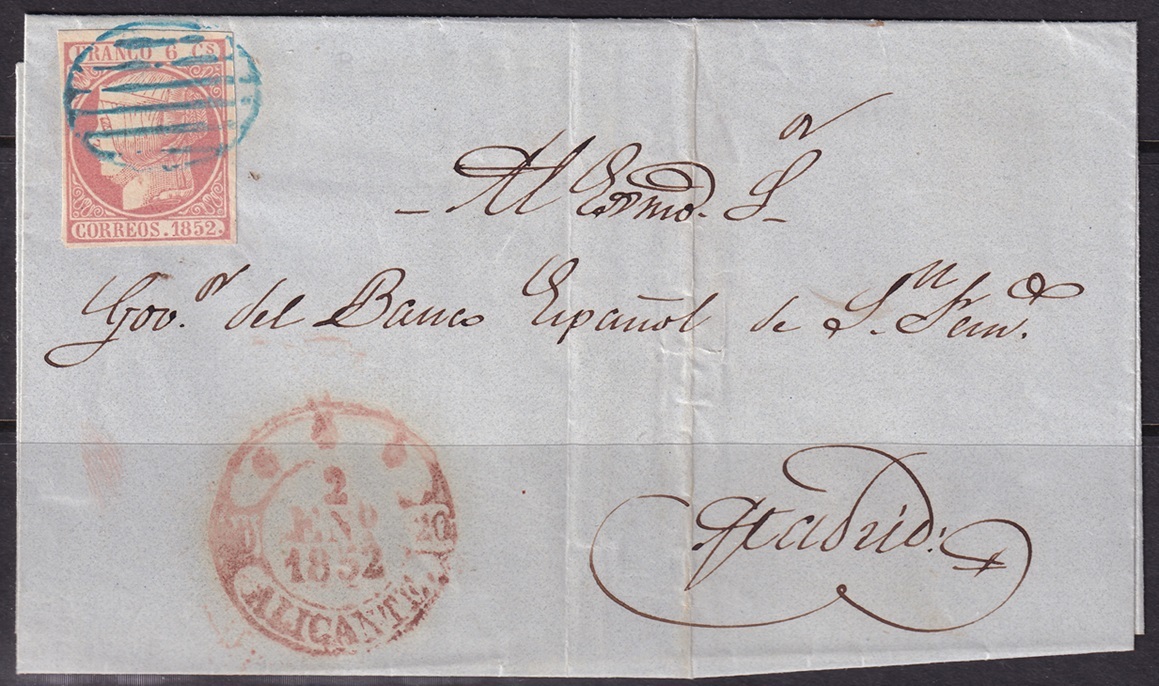 FRANCO 6 Cs
CORREOS. 1852.
Al Exmo. Sor
Gov.or del Banco Español de Sn. Fern.do
Madrid.
2
ENº
1852
20
ALICANTE.